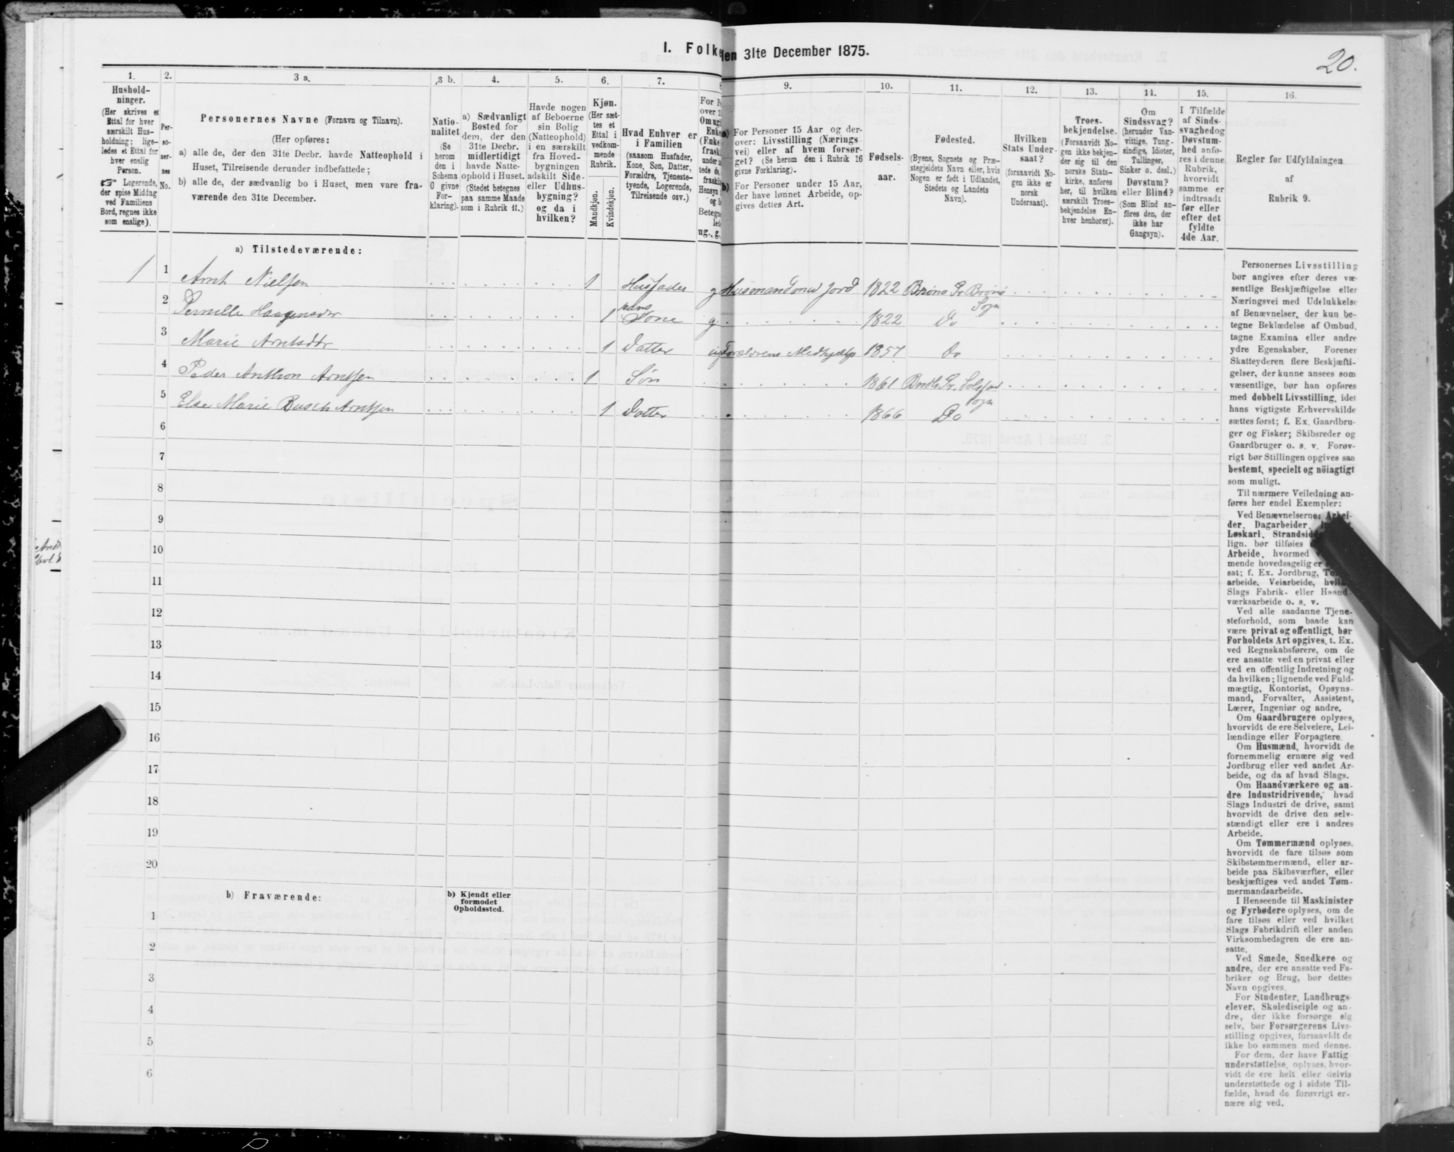 I. Folk
gen 31te December 1875.
20.
1.
2.
3 a.
3 b.
4.
5.
6.
7.
9.
10.
11.
12.
13.
14.
15.
16.
Hushold-
ninger.
(Her skrives et
Ettal for hver
særskilt Hus-
holdning; lige-
ledes et Ettal for
hver enslig
Person.
☞ Logerende,
der spise Middag
ved Familiens
Bord, regnes ikke
som enslige).
Per-
so-
ner-
nes
No.
Personernes Navne (Fornavn og Tilnavn).
(Her opføres:
a) alle de, der den 31te Decbr. havde Natteophold i
Huset, Tilreisende derunder indbefattede;
b) alle de, der sædvanlig bo i Huset, men vare fra-
værende den 31te December.
Natio-
nalitet
(Se
herom
den i
Schema
O givne
For-
klaring).
a) Sædvanligt
Bosted for
dem, der den
31te Decbr.
midlertidigt
havde Natte-
ophold i Huset.
(Stedet betegnes
paa samme Maade
som i Rubrik 11.)
Havde nogen
af Beboerne
sin Bolig
(Natteophold)
i en særskilt
fra Hoved-
bygningen
adskilt Side-
eller Udhus-
bygning?
og da i
hvilken?
Kjøn.
(Her sæt-
tes et
Ettal i
vedkom-
mende
Rubrik.
Mandkjøn.
Kvindekjøn.
Hvad Enhver er
i Familien
(saasom Husfader,
Kone, Søn, Datter,
Forældre, Tjeneste-
tyende, Logerende,
Tilreisende osv.)
For Personer 15 Aar og der-
over: Livsstilling (Nærings-
vei) eller af hvem forsør-
get? (Se herom den i Rubrik 16
givne Forklaring).
For Personer under 15 Aar,
der have lønnet Arbeide, op-
gives dettes Art.
Fødsels-
aar.
Fødested.
(Byens, Sognets og Præ-
stegjeldets Navn eller, hvis
Nogen er født i Udlandet,
Stedets og Landets
Navn).
Hvilken
Stats Under-
saat?
(forsaavidt No-
gen ikke er
norsk
Undersaat).
Troes-
bekjendelse.
(Forsaavidt No-
gen ikke bekjen-
der sig til den
norske Stats-
kirke, anføres
her, til hvilken
særskilt Troes-
bekjendelse En-
hver henhorer).
Om
Sindssvag?
(herunder Van-
vittige, Tung-
sindige, Idioter,
Tullinger,
Sinker o. desl.)
Døvstum?
eller Blind?
(Som Blind an-
føres den, der
ikke har
Gangsyn).
I Tilfælde
af Sinds-
svaghedog
Døvstum-
hed anfø-
res i denne
Rubrik,
hvorvidt
samme er
indtraadt
før eller
efter det
fyldte
4de Aar.
Regler for Udfyldningen
af
Rubrik 9.
a) Tilstedeværende:
1 1 Arnt Nielsen 1 Husfader g Husmand med Jord 1822 Brönö Pr Brönö Sogn
2 Pernille Haagensdtr 1 hans Kone g 1822 Do
3 Marie Arntsdtr 1 Datter ug 1857 Do
4 Peder Anthon Arntsen 1 Søn 1861 Sogn
5 Else Marie Busch Arntsen 1 Datter 1866 Do
6
7
8
9
10
11
12
13
14
15
16
17
18
19
20
b) Fraværende:
b) Kjendt eller
formodet
Opholdssted.
1
2
3
4
5
6
Personernes Livsstilling
bør angives efter deres væ-
sentlige Beskjæftigelse eller
Næringsvei med Udelukkelse
af Benævnelser, der kun be-
tegne Beklædelse af Ombud,
tagne Examina eller andre
ydre Egenskaber. Forener
Skatteyderen flere Beskjæfti-
gelser, der kunne ansees som
væsentlige, bør han opføres
med dobbelt Livsstilling, idet
hans vigtigste Erhvervskilde
sættes først; f. Ex. Gaardbru-
ger og Fisker; Skibsreder og
Gaardbruger o. s. v. Forøv-
rigt bør Stillingen opgives saa
bestemt, specielt og nöiagtigt
som muligt.
Til nærmere Veiledning an-
føres her endel Exempler:
Ved Benævnelserne:
der, Dagarbeider,
Løskarl,
lign. bør tilføies
Arbeide, hvormed
mende hovedsagelig er
sat; f. Ex. Jordbrug,
arbeide, Veiarbeide,
Slags Fabrik- eller Haand-
værksarbeide o. s. v.
Ved alle saadanne Tjene-
steforhold, som baade kan
være privat og offentligt, bør
Forholdets Art opgives, t. Ex.
ved Regnskabsførere, om de
ere ansatte ved en privat eller
ved en offentlig Indretning og
da hvilken; lignende ved Fuld-
mægtig, Kontorist, Opsyns-
mand, Forvalter, Assistent,
Lærer, Ingeniør og andre.
Om Gaardbrugere oplyses,
hvorvidt de ere Selveiere, Lei-
lændinge eller Forpagtere.
Om Husmænd, hvorvidt de
fornemmelig ernære sig ved
Jordbrug eller ved andet Ar-
beide, og da af hvad Slags.
Om Haandværkere og an-
dre Industridrivende, hvad
Slags Industri de drive, samt
hvorvidt de drive den selv-
stændigt eller ere i andres
Arbeide.
Om Tømmermænd oplyses,
hvorvidt de fare tilsøs som
Skibstømmermænd, eller ar-
beide paa Skibsværfter, eller
beskjæftiges ved andet Tøm-
mermandsarbeide.
I Henseende til Maskinister
og Fyrbødere oplyses, om de
fare tilsøs eller ved hvilket
Slags Fabrikdrift eller anden
Virksomhedsgren de ere an-
satte.
Ved Smede, Snedkere og
andre, der ere ansatte ved Fa-
briker og Brug, bør dettes
Navn opgives.
For Studenter, Landbrugs-
elever, Skoledisciple og an-
dre, der ikke forsørge sig
selv, bør Forsørgerens Livs-
stilling opgives, forsaavidt de
ikke bo sammen med denne.
For dem, der have Fattig-
understøttelse, oplyses, hvor-
vidt de ere helt eller delvis
understøttede og i sidste Til-
fælde, hvad de forøvrigt er-
nære sig ved.